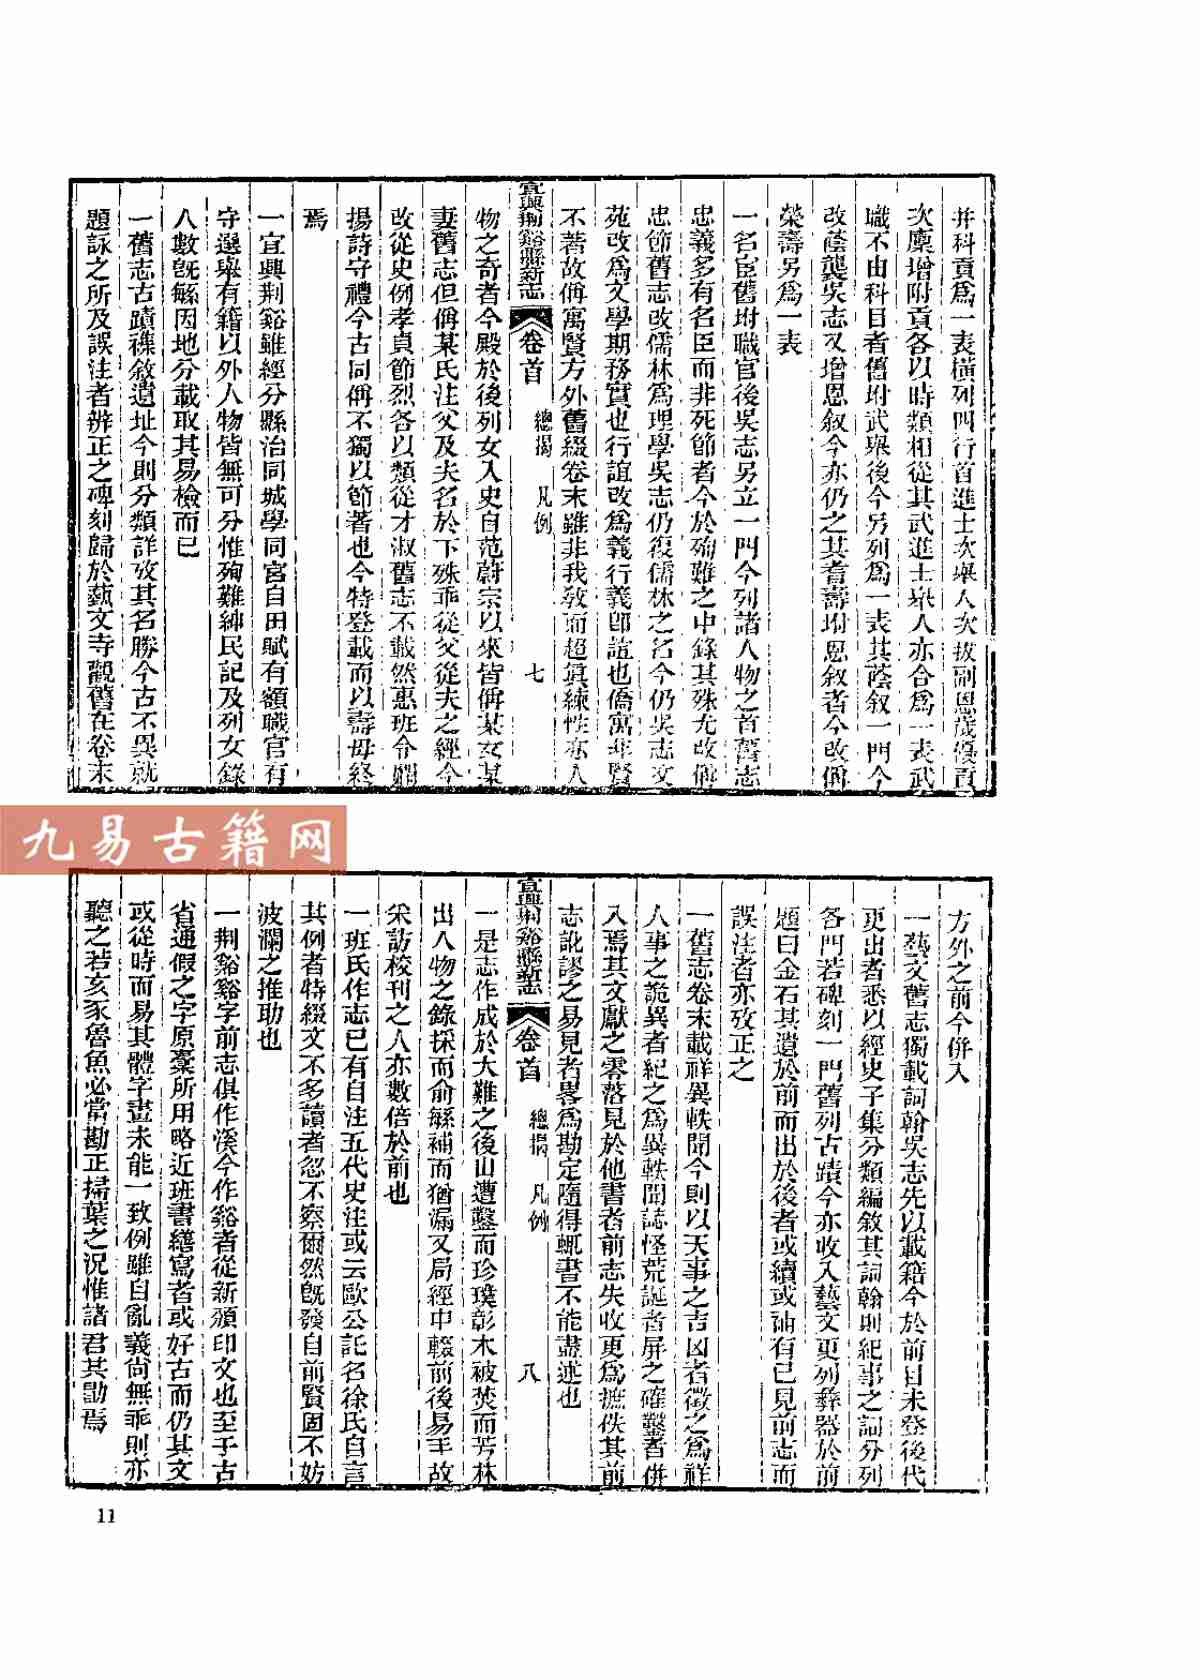 幷科貢爲一表橫列四行首進士次舉人次拔副恩歲優貢
次廩增附貢各以時類相從其武進士舉人亦合爲一表武
職不由科目者舊坿武舉後今另列爲一表其蔭敘一門今
改蔭襲吳志又增恩敘今亦仍之其耆壽坿恩敘者今改偁
榮壽另爲一表
一名宦舊坿職官後吳志另立一門今列諸人物之首舊志
忠義多有名臣而非死節者今於殉難之中錄其殊尤改偁
忠節舊志改儒林爲理學吳志仍復儒林之名今仍吳志文
苑改爲文學期務實也行誼改爲義行義卽誼也僑寓非賢
不著故偁寓賢方外舊綴卷末雖非我敎而超眞練性亦人
宜興荆谿縣新志 卷首 總揭 凡例 七
物之奇者今殿於後列女入史自范蔚宗以來皆偁某女某
妻舊志但偁某氏注父及夫名於下殊乖從父從夫之經今
改從史例孝貞節烈各以類從才淑舊志不載然惠班令嫺
揚詩守禮今古同偁不獨以節著也今特登載而以壽母終
焉
一宜興荆谿雖經分縣治同城學同宮自田賦有額職官有
守選舉有籍以外人物皆無可分惟殉難紳民記及列女錄
人數旣緐因地分載取其易檢而已
一舊志古蹟襍敘遺址今則分類詳攷其名勝今古不異就
題詠之所及誤注者辨正之碑刻歸於藝文寺觀舊在卷末
方外之前今併入
一藝文舊志獨載詞翰吳志先以載籍今於前目未登後代
更出者悉以經史子集分類編敘其詞翰則紀事之詞分列
各門若碑刻一門舊列古蹟今亦收入藝文更列彝器於前
題曰金石其遺於前而出於後者或續或補有已見前志而
誤注者亦攷正之
一舊志卷末載祥異軼聞今則以天事之吉凶者徵之爲祥
人事之詭異者紀之爲異軼聞誌怪荒誕者屏之確鑿者併
入焉其文獻之零落見於他書者前志失收更爲摭佚其前
志訛謬之易見者畧爲勘定隨得輒書不能盡述也
宜興荆谿縣新志 卷首 總揭 凡例 八
一是志作成於大難之後山遭鑿而珍璞彰木被焚而芳林
出人物之錄採而俞緐補而猶漏又局經中輟前後易手故
采訪校刊之人亦數倍於前也
一班氏作志已有自注五代史注或云歐公託名徐氏自言
其例者特綴文不多讀者忽不察爾然旣發自前賢固不妨
波瀾之推助也
一荆谿谿字前志俱作溪今作谿者從新頒印文也至于古
省通假之字原稾所用略近班書繕寫者或好古而仍其文
或從時而易其體字畫未能一致例雖自亂義尚無乖則亦
聽之若亥豕魯魚必當勘正掃葉之況惟諸君其勖焉
九易古籍网
11